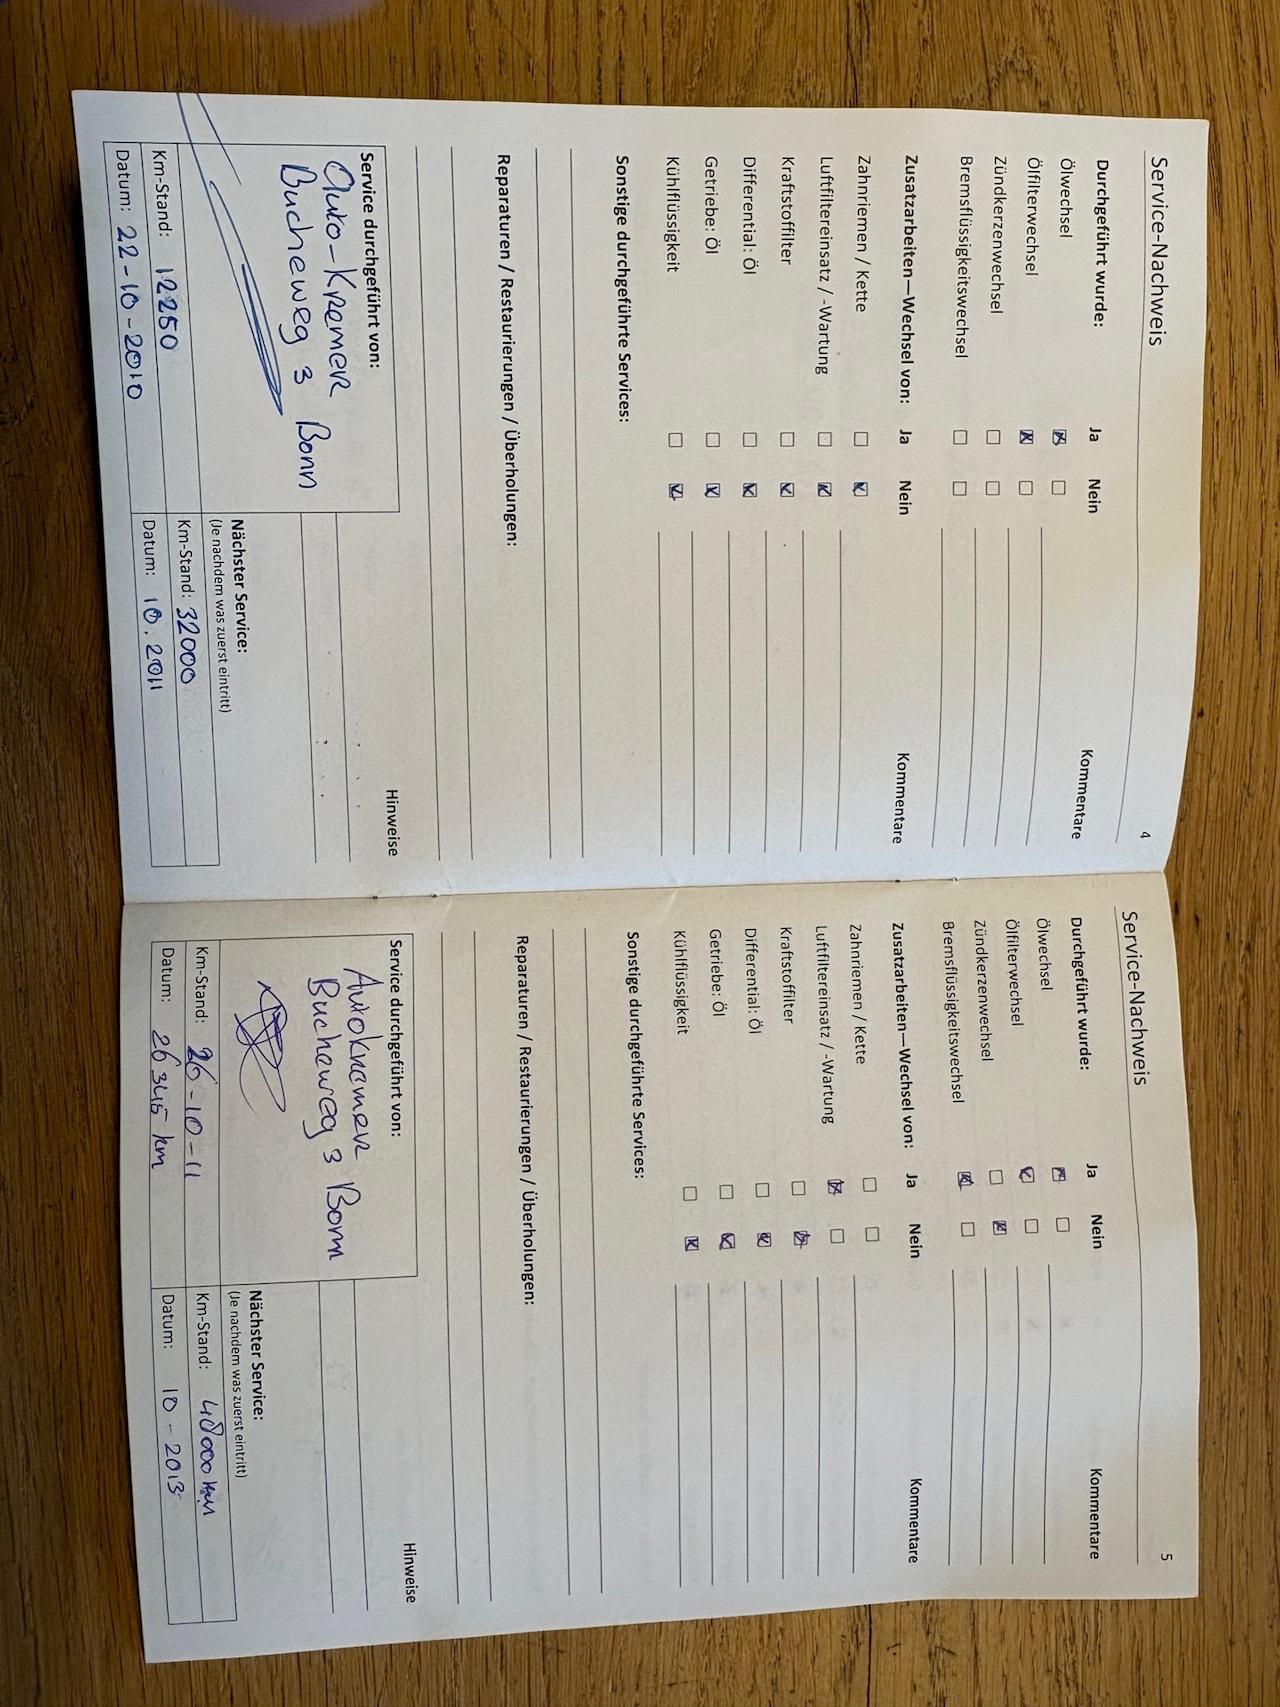 Service-Nachweis 4
Durchgeführt wurde: Ja Nein Kommentare
Ölwechsel
Ölfilterwechsel
Zündkerzenwechsel
Bremsflüssigkeitswechsel
Zusatzarbeiten—Wechsel von: Ja Nein Kommentare
Zahnriemen / Kette
Luftfiltereinsatz / -Wartung
Kraftstoffilter
Differential: Öl
Getriebe: Öl
Kühlflüssigkeit
Sonstige durchgeführte Services:
Reparaturen / Restaurierungen / Überholungen:
Hinweise
Service durchgeführt von:
Auto-Kremer
Bucheweg 3 Bonn
Km-Stand: 12250
Datum: 22-10-2010
Nächster Service:
(Je nachdem was zuerst eintritt)
Km-Stand: 32000
Datum: 10.2011
Service-Nachweis 5
Durchgeführt wurde: Ja Nein Kommentare
Ölwechsel
Ölfilterwechsel
Zündkerzenwechsel
Bremsflüssigkeitswechsel
Zusatzarbeiten—Wechsel von: Ja Nein Kommentare
Zahnriemen / Kette
Luftfiltereinsatz / -Wartung
Kraftstoffilter
Differential: Öl
Getriebe: Öl
Kühlflüssigkeit
Sonstige durchgeführte Services:
Reparaturen / Restaurierungen / Überholungen:
Hinweise
Service durchgeführt von:
Autokremer
Bucheweg 3 Bonn
Km-Stand: 26-10-11
Datum: 26345 km
Nächster Service:
(Je nachdem was zuerst eintritt)
Km-Stand: 48000 km
Datum: 10-2013